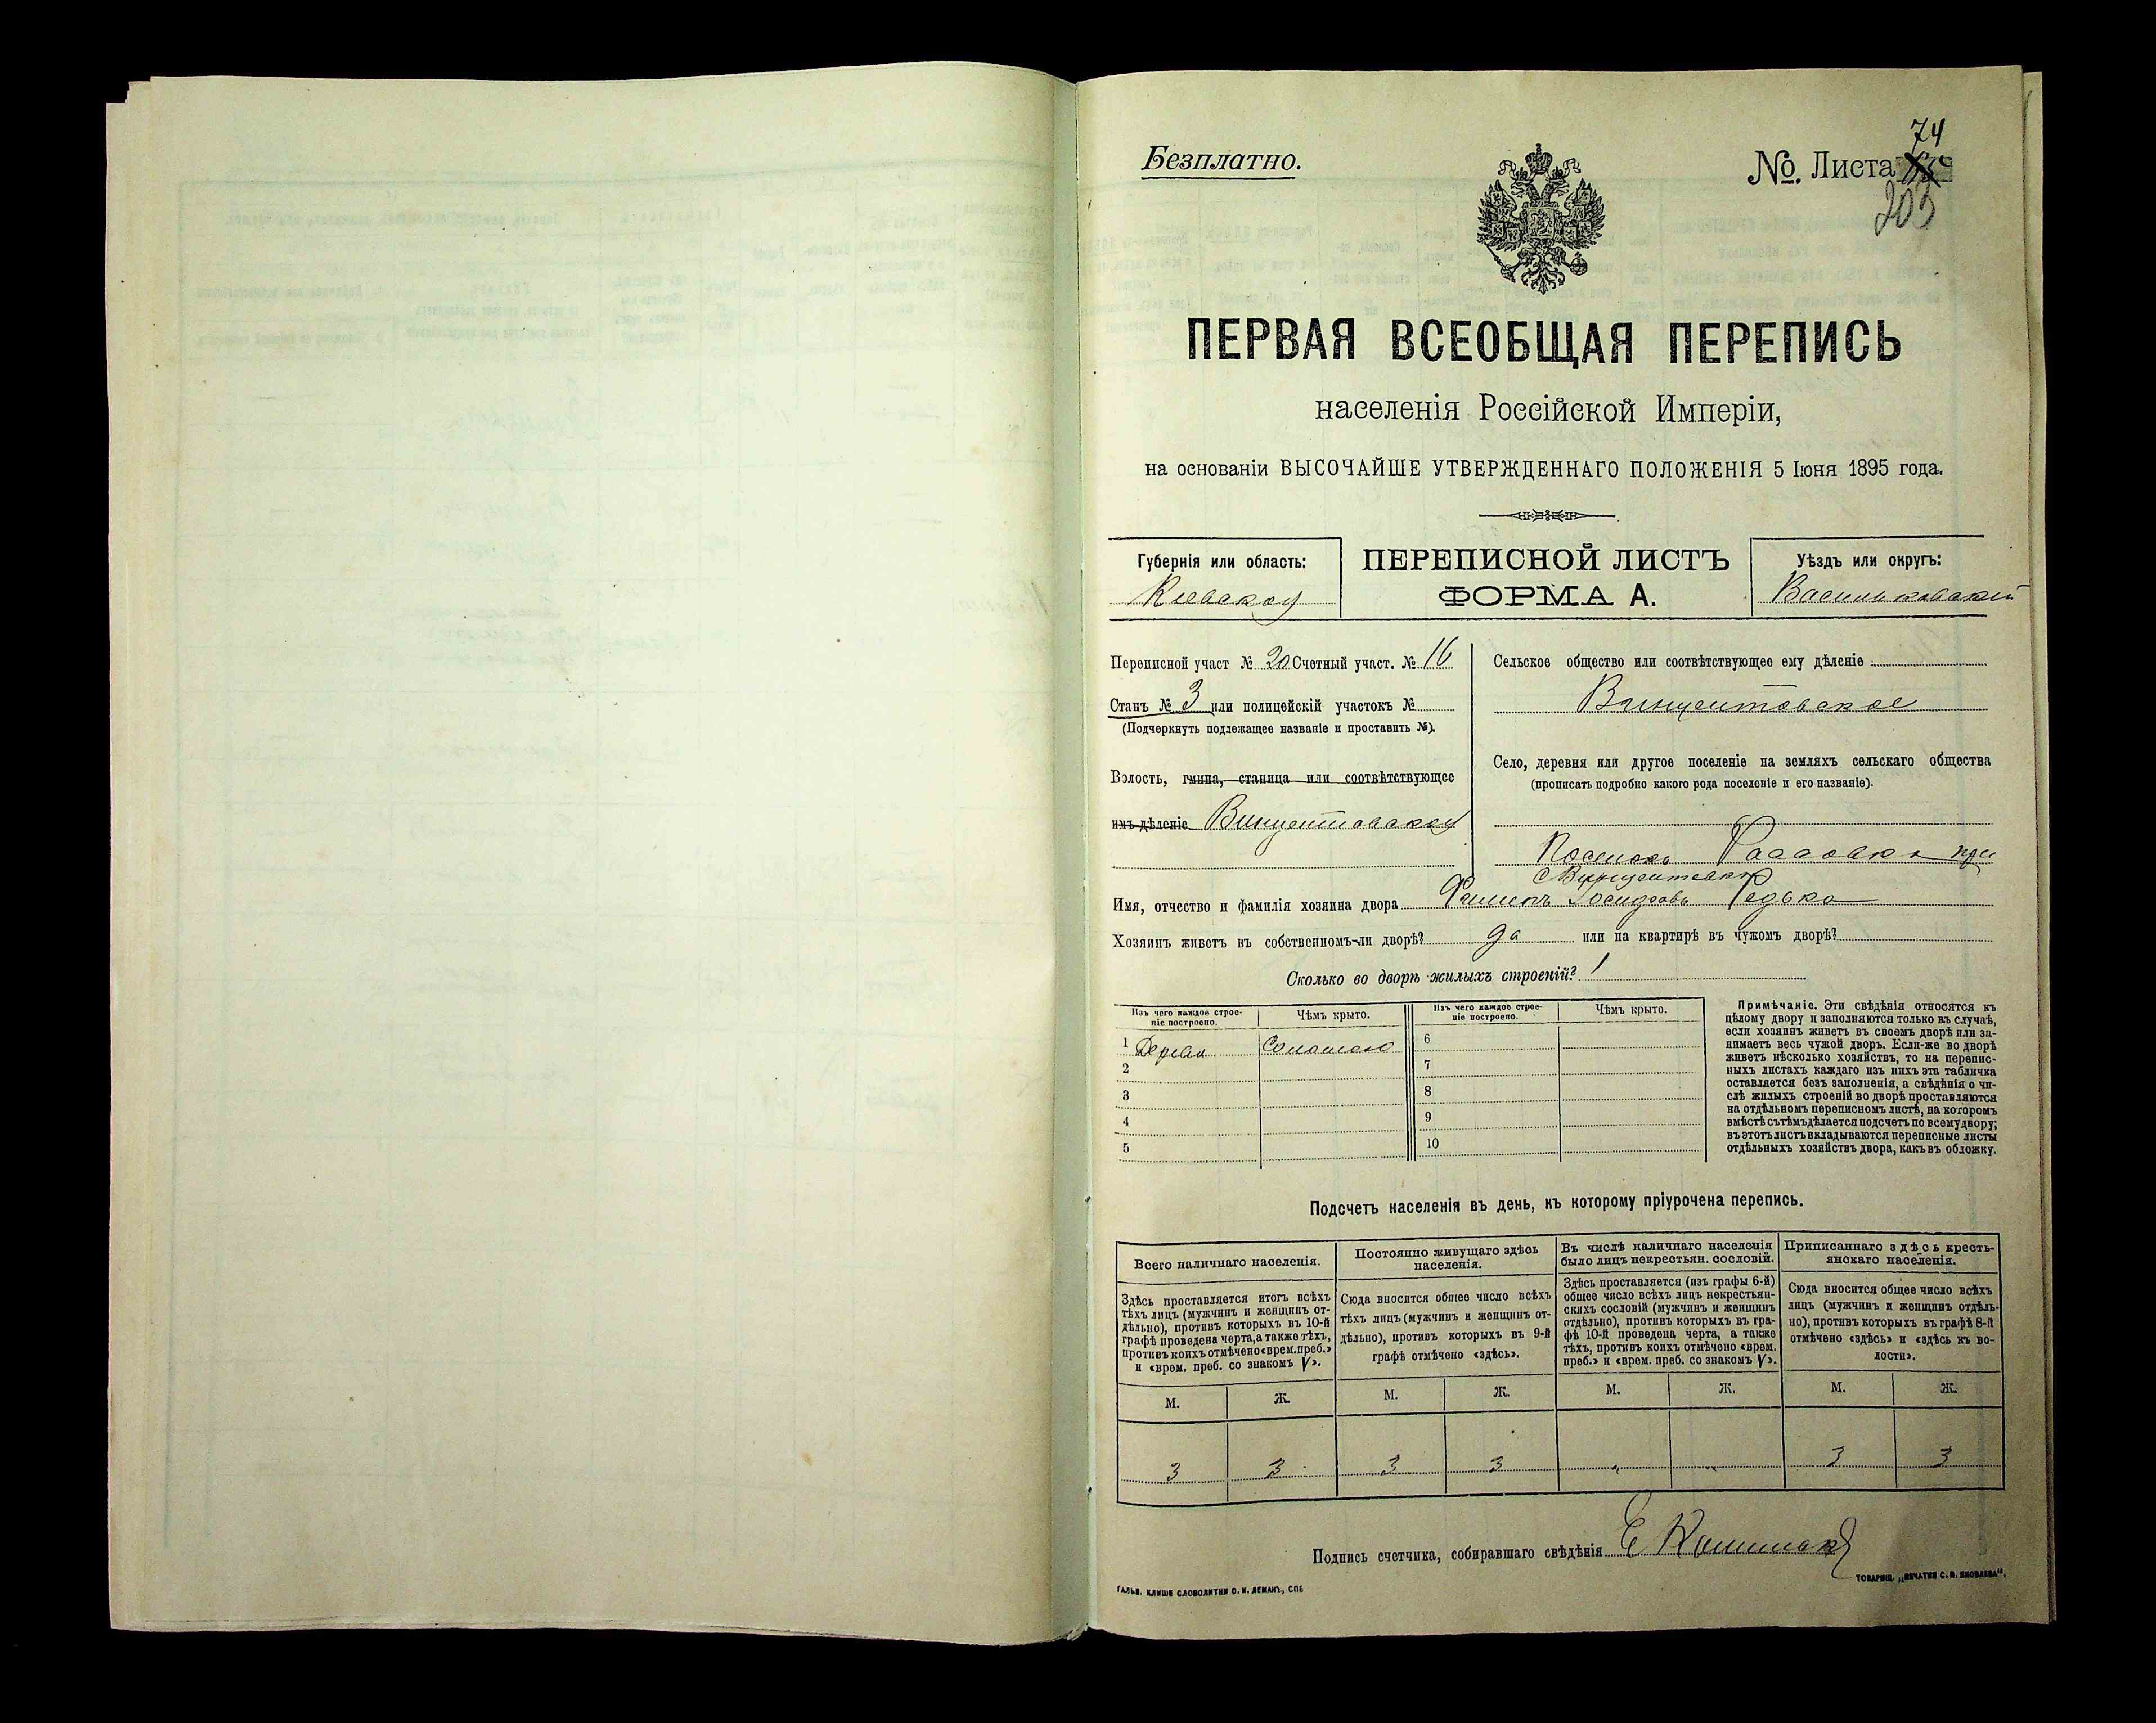 Безплатно.
№ Листа 74
203
ПЕРВАЯ ВСЕОБЩАЯ ПЕРЕПИСЬ
населенія Россійской Имперіи,
на основаніи ВЫСОЧАЙШЕ УТВЕРЖДЕННАГО ПОЛОЖЕНІЯ 5 Іюня 1895 года.
Губернія или область:
Киевская
ПЕРЕПИСНОЙ ЛИСТЪ
ФОРМА А.
Уѣздъ или округъ:
Васильковский
Переписной участ № 20 Счетный участ. № 16
Станъ № 3 или полицейскій участокъ №
(Подчеркнуть подлежащее названіе и проставить №).
Волость, гмина, станица или соотвѣтствующее
имъ дѣленіе Винцентовская
Сельское общество или соотвѣтствующее ему дѣленіе
Винцентовское
Село, деревня или другое поселеніе на земляхъ сельскаго общества
(прописать подробно какого рода поселеніе и его названіе).
Поселокъ при
Имя, отчество и фамилія хозяина двора Филипъ Редько
Хозяинъ живетъ въ собственномъ-ли дворѣ? да или на квартирѣ въ чужомъ дворѣ?
Сколько во дворѣ жилыхъ строеній? 1
Изъ чего каждое строе-
ніе построено.
Чѣмъ крыто.
Изъ чего каждое строе-
ніе построено.
Чѣмъ крыто.
1 Дерева Соломою
2
3
4
5
6
7
8
9
10
Примѣчаніе. Эти свѣдѣнія относятся къ
цѣлому двору и заполняются только въ случаѣ,
если хозяинъ живетъ въ своемъ дворѣ или за-
нимаетъ весь чужой дворъ. Если-же во дворѣ
живетъ нѣсколько хозяйствъ, то на перепис-
ныхъ листахъ каждаго изъ нихъ эта табличка
оставляется безъ заполненія, а свѣдѣнія о чи-
слѣ жилыхъ строеній во дворѣ проставляются
на отдѣльномъ переписномъ листѣ, на которомъ
вмѣстѣ съ тѣмъ дѣлается подсчетъ по всему двору;
въ этотъ листъ вкладываются переписные листы
отдѣльныхъ хозяйствъ двора, какъ въ обложку.
Подсчетъ населенія въ день, къ которому пріурочена перепись.
Всего наличнаго населенія.
Здѣсь проставляется итогъ всѣхъ
тѣхъ лицъ (мужчинъ и женщинъ от-
дѣльно), противъ которыхъ въ 10-й
графѣ проведена черта, а также тѣхъ,
противъ коихъ отмѣчено «врем. преб.»
и «врем. преб. со знакомъ V».
Постоянно живущаго здѣсь
населенія.
Сюда вносится общее число всѣхъ
тѣхъ лицъ (мужчинъ и женщинъ от-
дѣльно), противъ которыхъ въ 9-й
графѣ отмѣчено «здѣсь».
Въ числѣ наличнаго населенія
было лицъ некрестьян. сословій.
Здѣсь проставляется (изъ графы 6-й)
общее число всѣхъ лицъ некрестьян-
скихъ сословій (мужчинъ и женщинъ
отдѣльно), противъ которыхъ въ гра-
фѣ 10-й проведена черта, а также
тѣхъ, противъ коихъ отмѣчено «врем.
преб.» и «врем. преб. со знакомъ V».
Приписаннаго здѣсь кресть-
янскаго населенія.
Сюда вносится общее число всѣхъ
лицъ (мужчинъ и женщинъ отдѣль-
но), противъ которыхъ въ графѣ 8-й
отмѣчено «здѣсь» и «здѣсь къ во-
лости».
М. Ж. М. Ж. М. Ж. М. Ж.
3 3 3 3 „ „ 3 3
Подпись счетчика, собиравшаго свѣдѣнія
ГАЛЬВ. КЛИШЕ СЛОВОЛИТНИ О. И. ЛЕМАНЪ, СПБ
ТОВАРИЩ. „ПЕЧАТНЯ С. П. ЯКОВЛЕВА“.